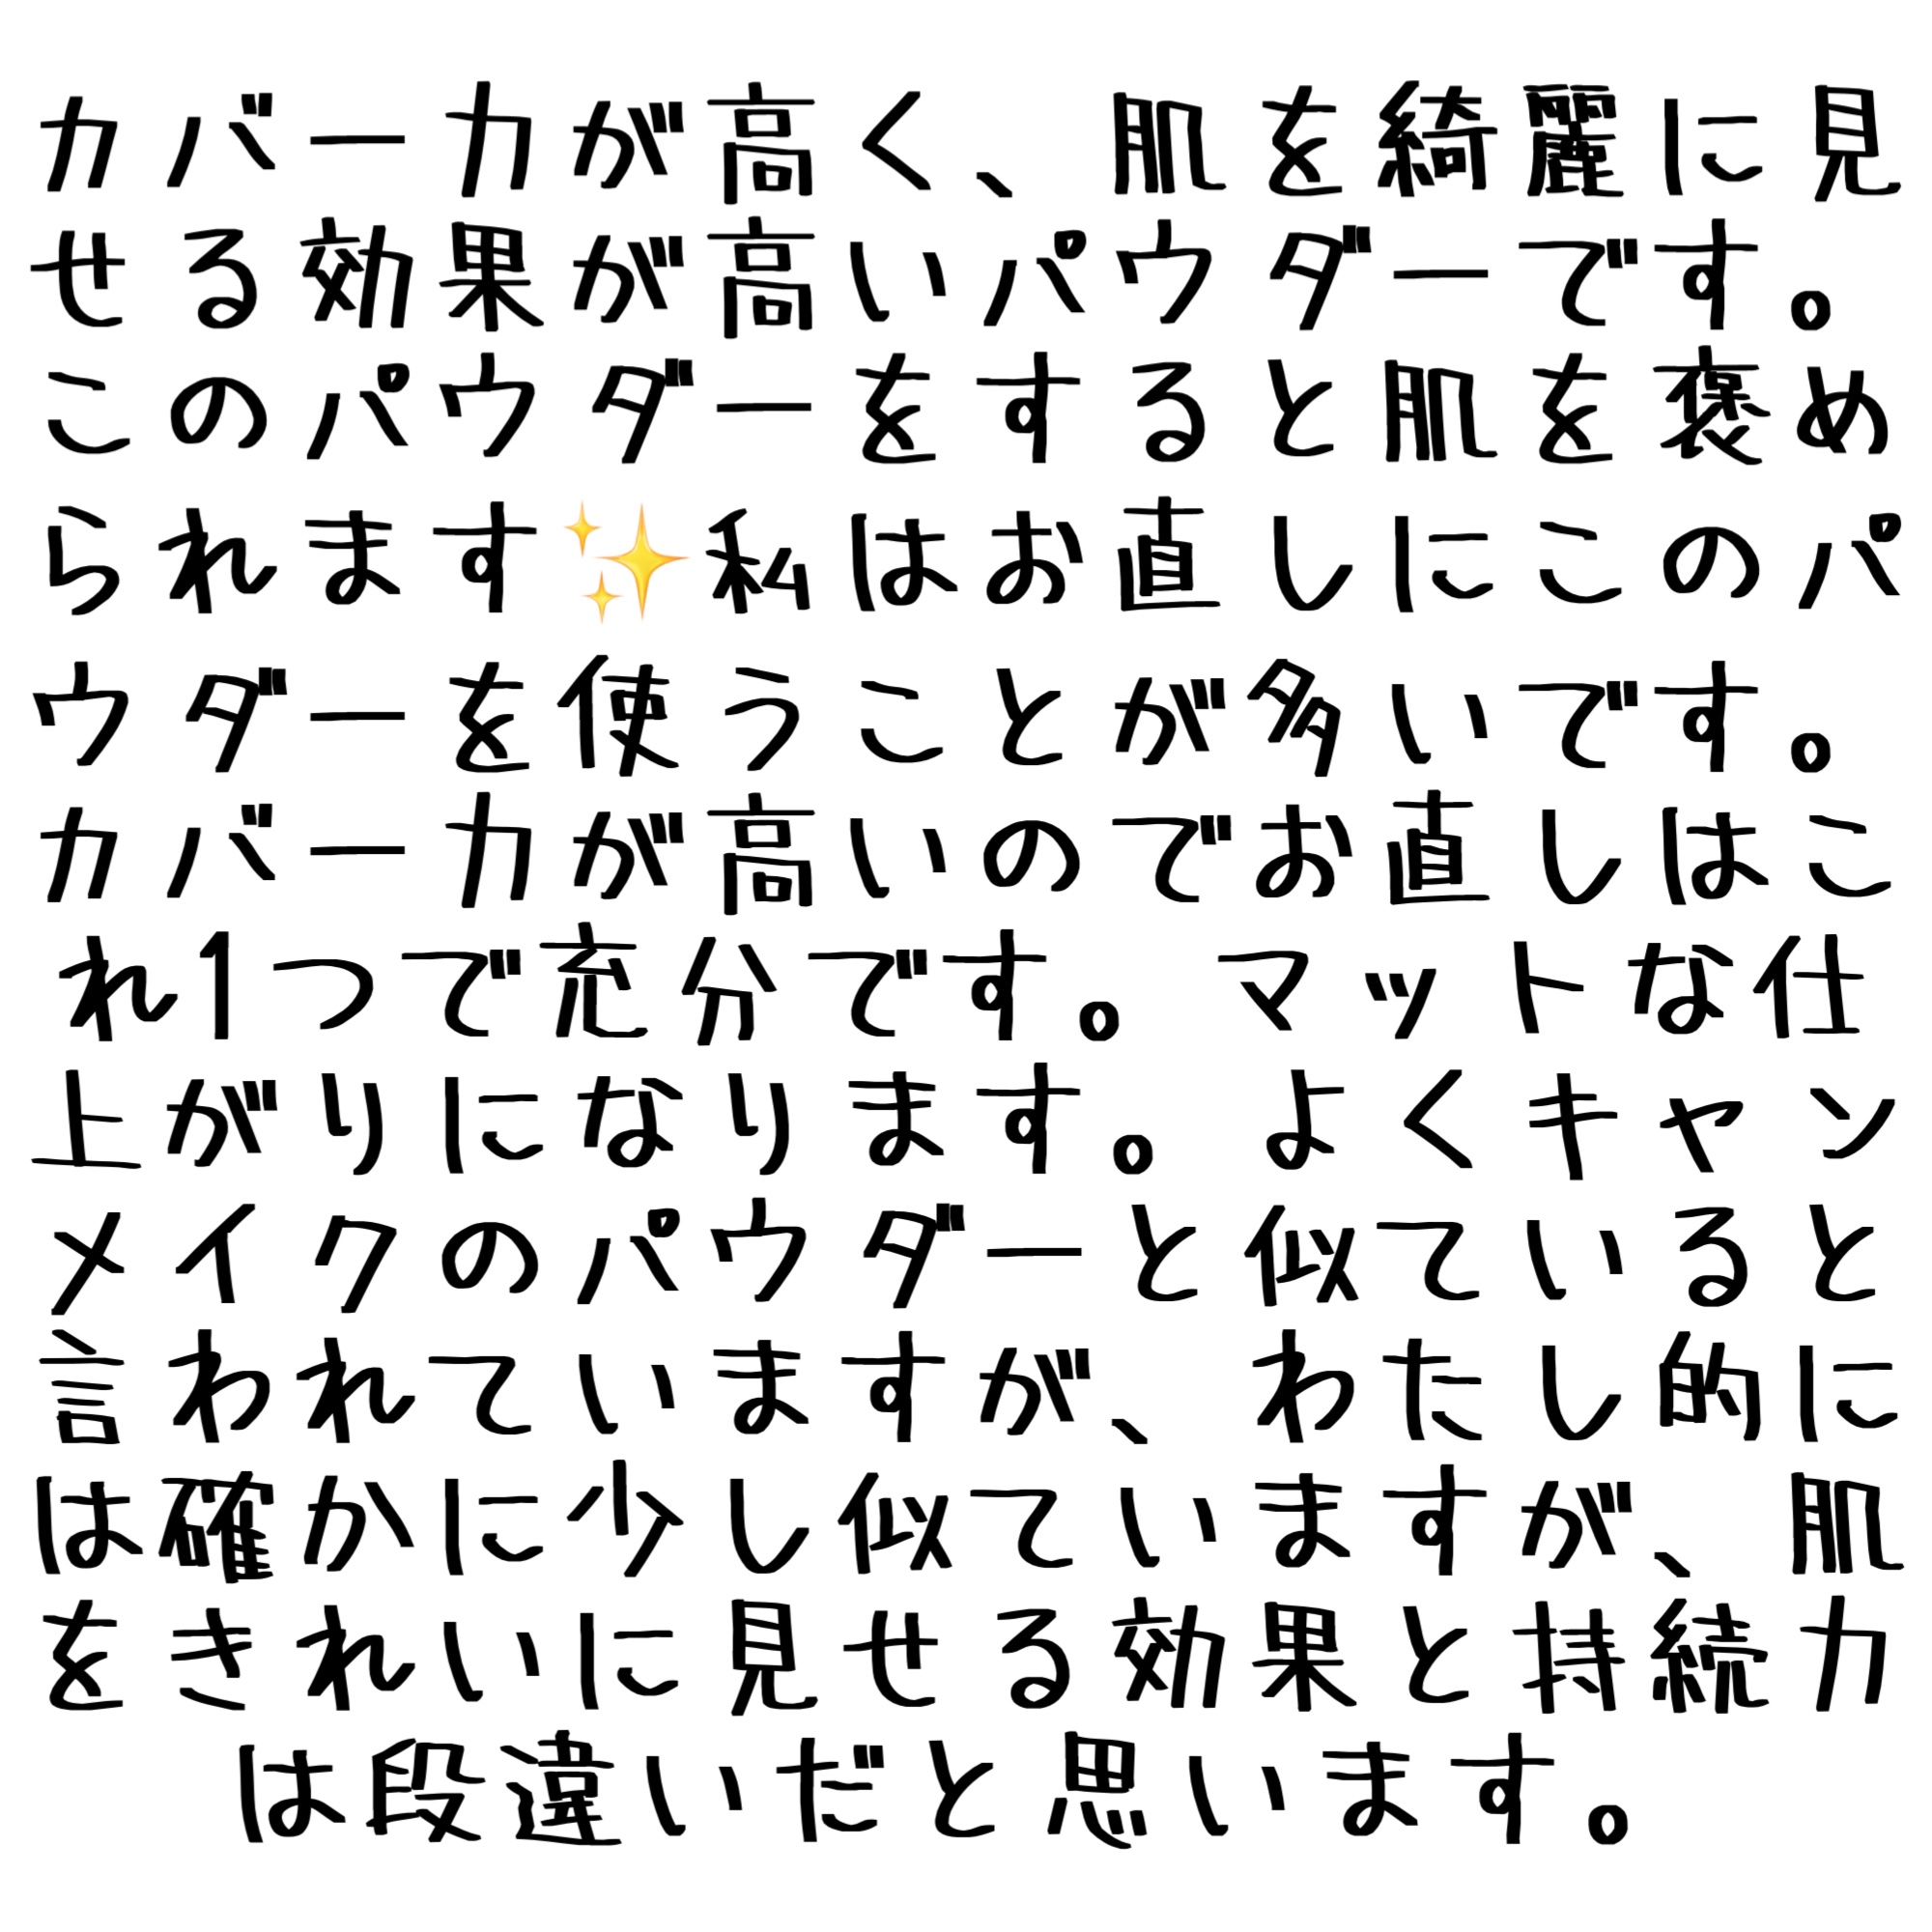 カバー力が高く、肌を綺麗に見
せる効果が高いパウダーです。
このパウダーをすると肌を褒め
られます✨私はお直しにこのパ
ウダーを使うことが多いです。
カバー力が高いのでお直しはこ
れ1つで充分です。マットな仕
上がりになります。よくキャン
メイクのパウダーと似ていると
言われていますが、わたし的に
は確かに少し似ていますが、肌
をきれいに見せる効果と持続力
は段違いだと思います。